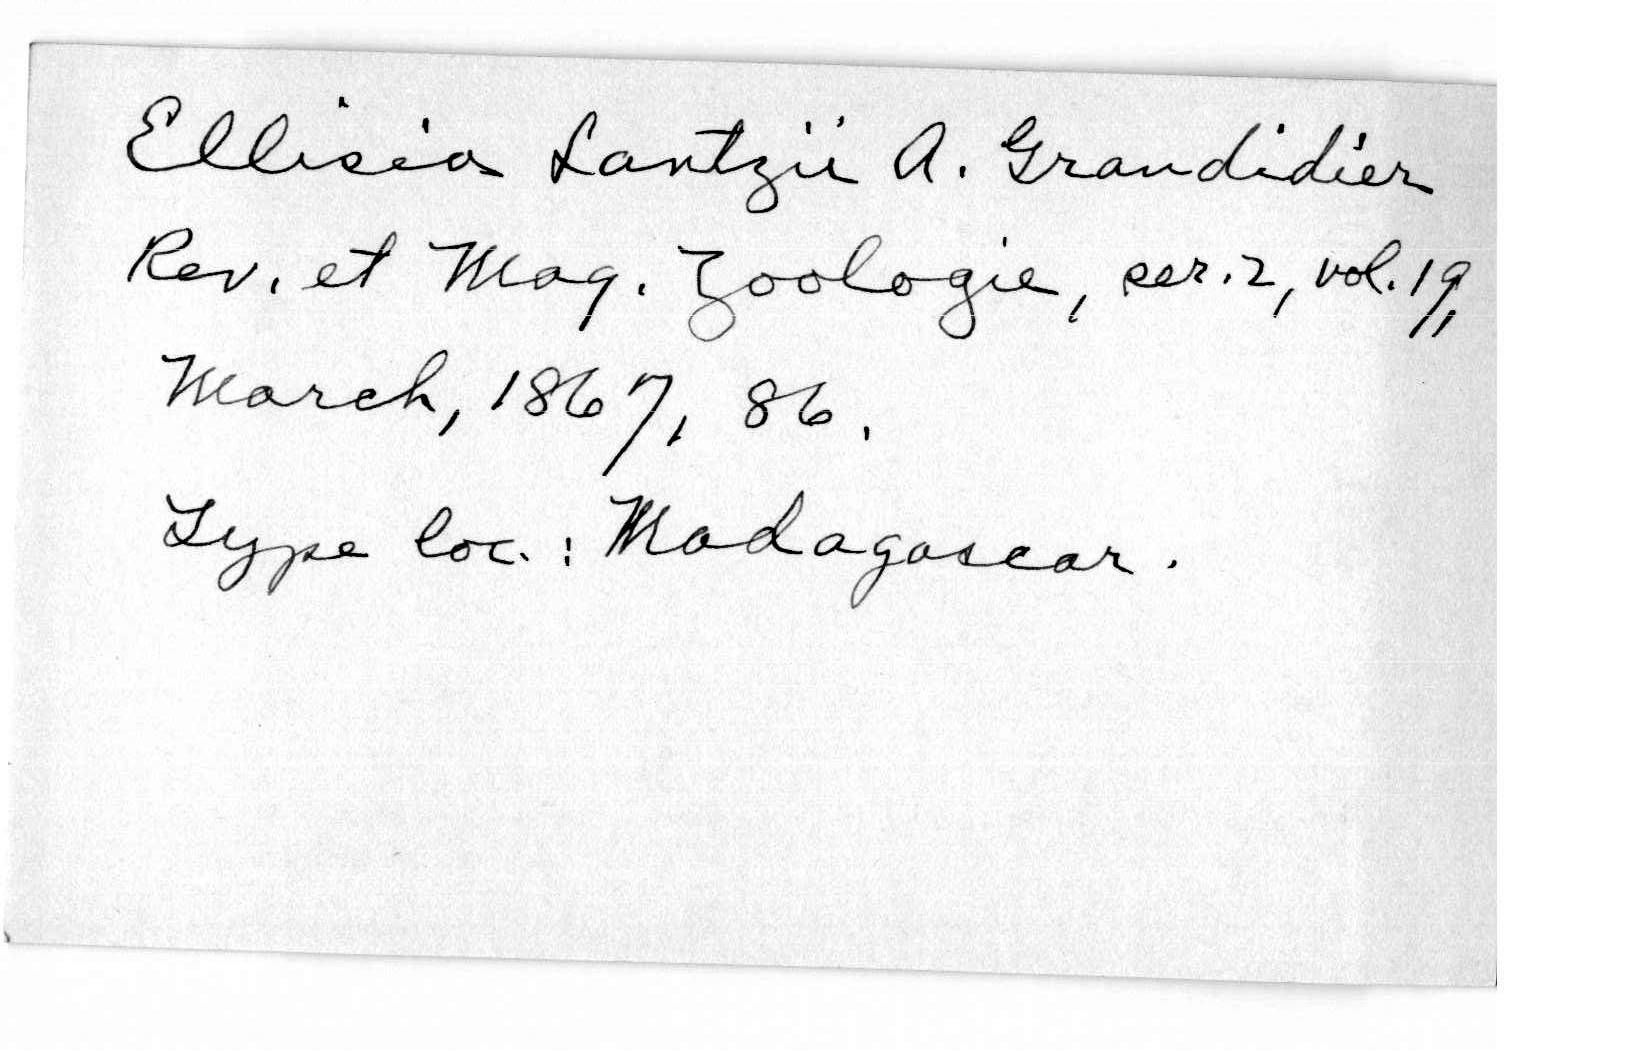 Ellisia Lantzii A. Grandidier
Rev. et Mag. Zoologie, ser. 2, vol. 19,
March, 1867, 86.
Type loc.: Madagascar.